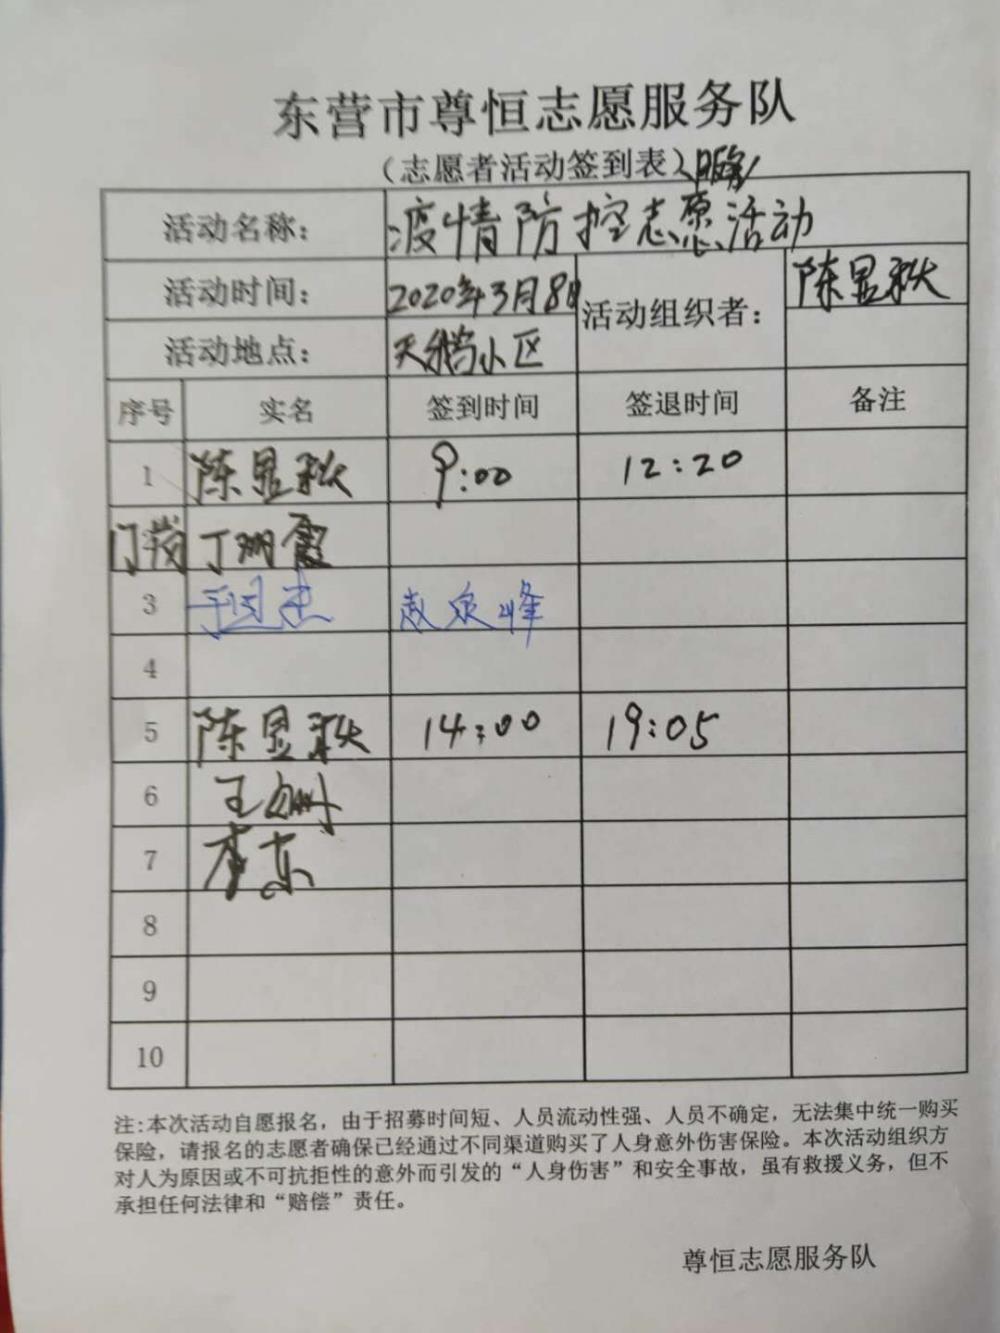 东营市尊恒志愿服务队
（志愿者活动签到表）
活动名称： 疫情防控志愿活动
活动时间： 2020年3月8日 活动组织者： 陈显秋
活动地点： 天鹅小区
序号 实名 签到时间 签退时间 备注
1 陈显秋 9:00 12:20
门岗 丁珊霞
3 赵泉峰
4
5 陈显秋 14:00 19:05
6 王
7 李东
8
9
10
注:本次活动自愿报名，由于招募时间短、人员流动性强、人员不确定，无法集中统一购买
保险，请报名的志愿者确保已经通过不同渠道购买了人身意外伤害保险。本次活动组织方
对人为原因或不可抗拒性的意外而引发的“人身伤害”和安全事故，虽有救援义务，但不
承担任何法律和“赔偿”责任。
尊恒志愿服务队